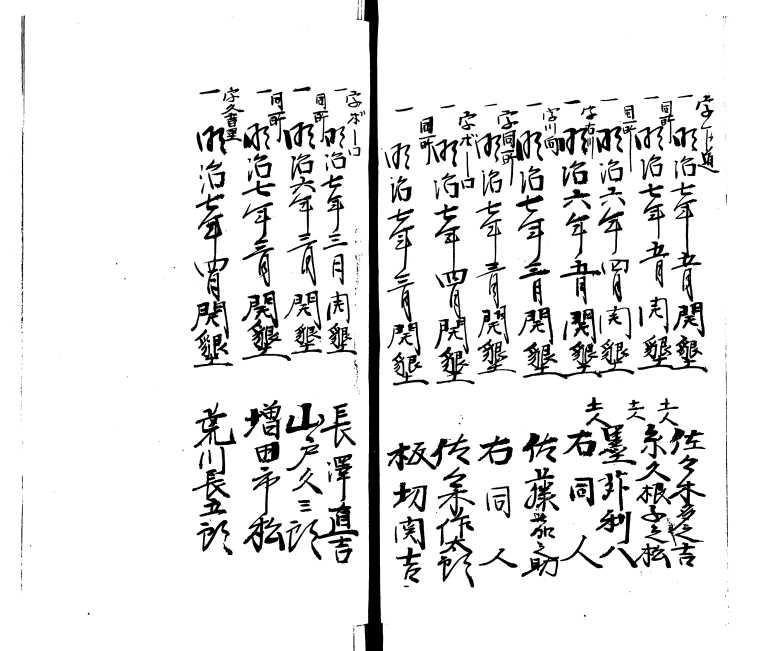 一 明治七年五月開墾 佐々木彦之吉
同所
一 明治七年五月開墾
土人 糸久根子之松
同所
一 明治六年四月開墾
土人 利八
字右川
一 明治六年五月開墾
土人 右同人
字川向
一 明治七年三月開墾 佐藤 之助
字同所
一 明治七年三月開墾 右同人
字ボー口
一 明治七年四月開墾 佐々木作太郎
同所
一 明治七年三月開墾 板切関吉
字ボー口
一 明治七年三月開墾 長澤直吉
同所
一 明治六年三月開墾 山戸久三郎
同所
一 明治七年三月開墾 増田市松
字
一 明治七年四月開墾 荒川長五郎